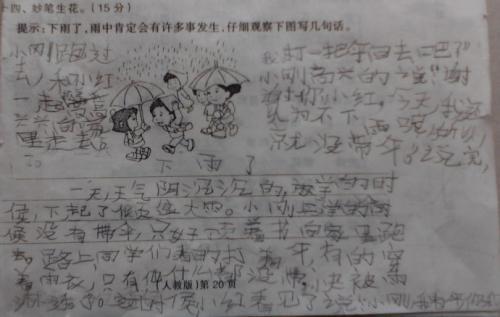 十四、妙笔生花。(15分)
提示:下雨了,雨中肯定会有许多事发生,仔细观察下图写几句话。
下雨了
一天,天气阴沉沉的,放学的时
候,下起了倾盆大雨。小刚上学的时
候没有带伞,只好顶着书包向家里跑
去。路上同学们有的打伞,有的穿
着雨衣,只有他什么都没带,小
这时候小红看见了说:“小刚我
我打一把伞回去吧!”
小刚高兴的说:“谢
谢你小红,今天我
以为不下雨呢所以
就没带伞。”说完,
小刚跑过
去,和小红
一起
兴兴的向家
里走去。
(人教版)第20页